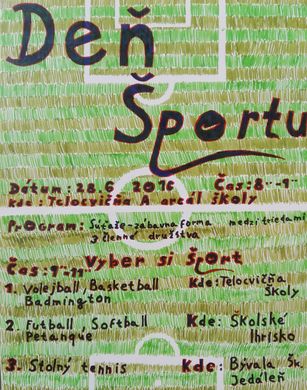 Deň
Športu
Dátum: 28.6 2016 Čas: 8--1--
kde: Telocvičňa A areál školy
Program: Súťaže-zábavna forma medzi triedami
3 členné družstva
Vyber si Šport
Čas: 9--11--
1. Volejball, Basketball Kde: Telocvičňa
Badmington Školy
2. Futball, Softball Kde: Školské
Petanque Ihrisko
3. Stolný tennis Kde: Bývala šj.
Jedáleň